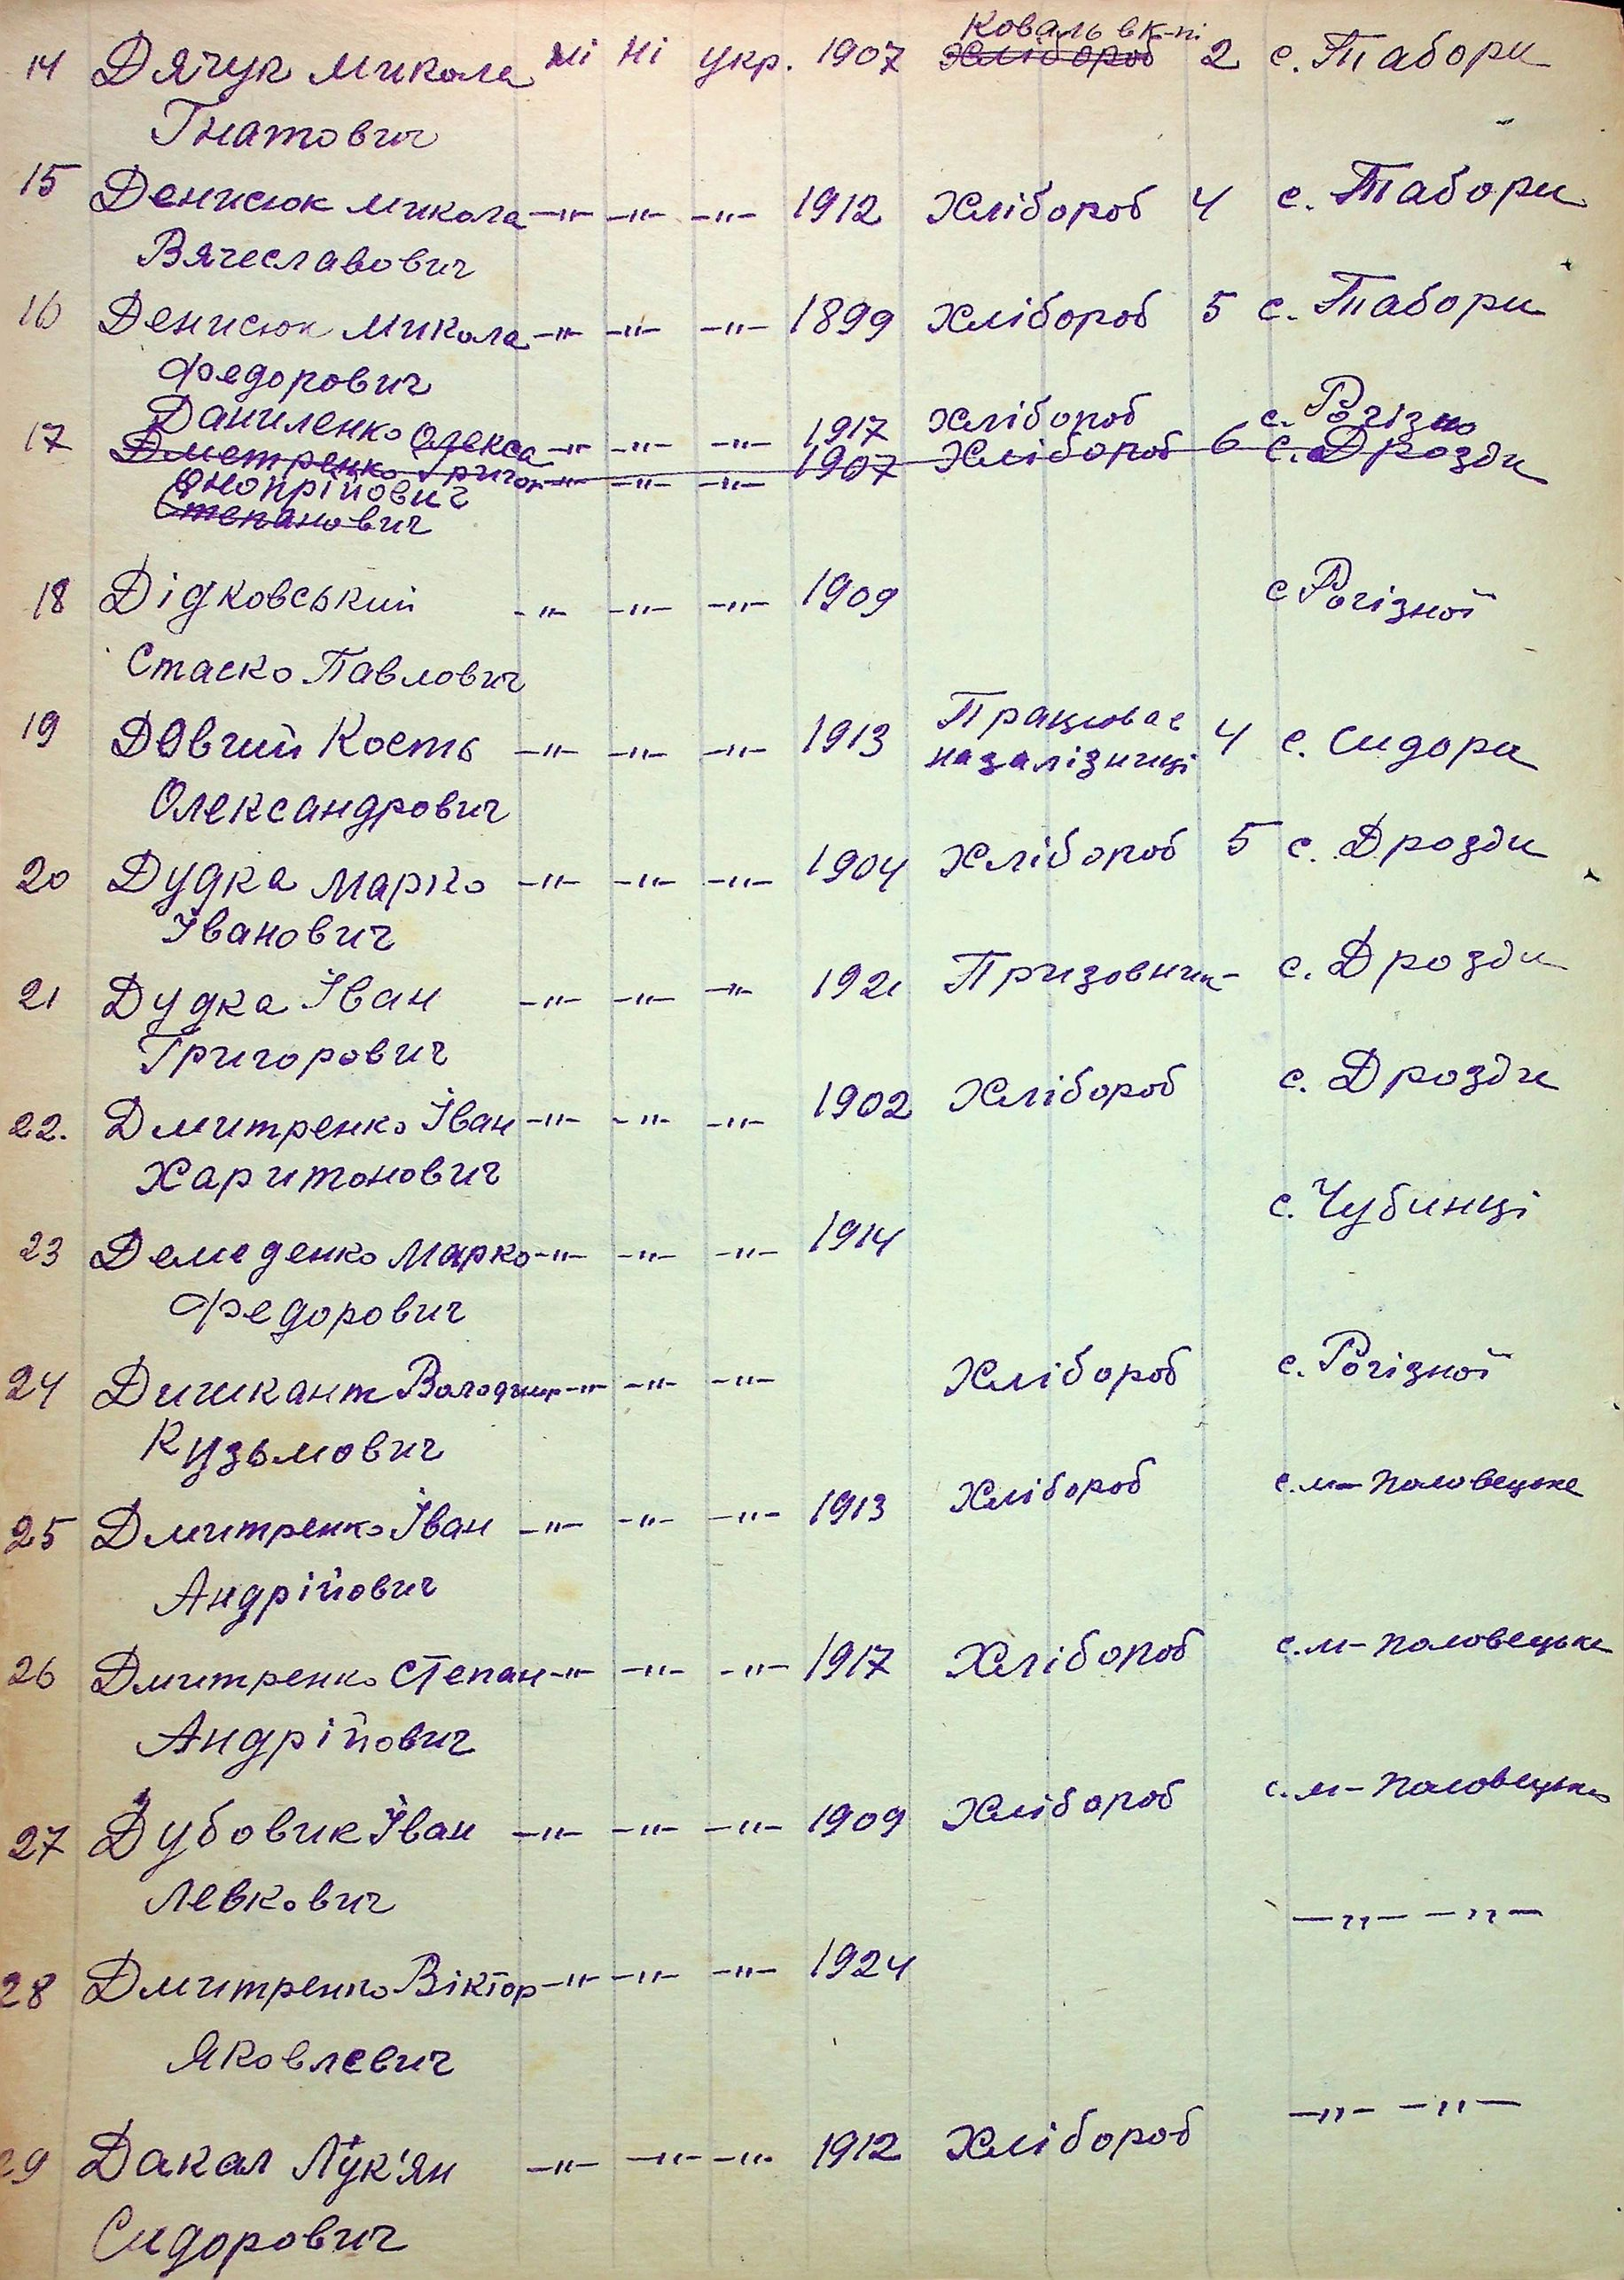 Коваль в к-пі
14 Дячук Микола Ні Ні Укр. 1907 Хлібороб 2 с. Табори
Гнатович
15 Денисюк Микола -"- -"- -"- 1912 Хлібороб 4 с. Табори
Вячеславович
16 Денисюк Микола -"- -"- -"- 1899 Хлібороб 5 с. Табори
Федорович
17 Даниленко Олекса -"- -"- -"- 1917 Хлібороб с. Рогізно
Дметренко Григор -"- -"- -"- 1907 Хлібороб 6 с. Дрозди
Онопрійович
Степанович
18 Дідковський -"- -"- -"- 1909 с Рогізної
Стаско Павлович
19 Довгий Кость -"- -"- -"- 1913 Працював 4 с. Сидори
назалізниці
Олександрович
20 Дудка Марко -"- -"- -"- 1904 Хлібороб 5 с. Дрозди
Іванович
21 Дудка Іван -"- -"- -"- 1921 Призовник - с. Дрозди
Григорович
22. Дмитренко Іван -"- -"- -"- 1902 Хлібороб с. Дрозди
Харитонович
23 Демеденко Марко -"- -"- -"- 1914 с. Чубинці
Федорович
24 Дишкант Володимир -"- -"- -"- Хлібороб с. Рогізної
Кузьмович
25 Дмитренко Іван -"- -"- -"- 1913 Хлібороб с. м-Половецьке
Андрійович
26 Дмитренко Степан -"- -"- -"- 1917 Хлібороб с. м-Половецьке
Андрійович
27 Дубовик Іван -"- -"- -"- 1909 Хлібороб с. м-Половецьке
Левкович
28 Дмитренко Віктор -"- -"- -"- 1924 -"- -"-
Яковлевич
29 Дакал Лук'ян -"- -"- -"- 1912 Хлібороб -"- -"-
Сидорович